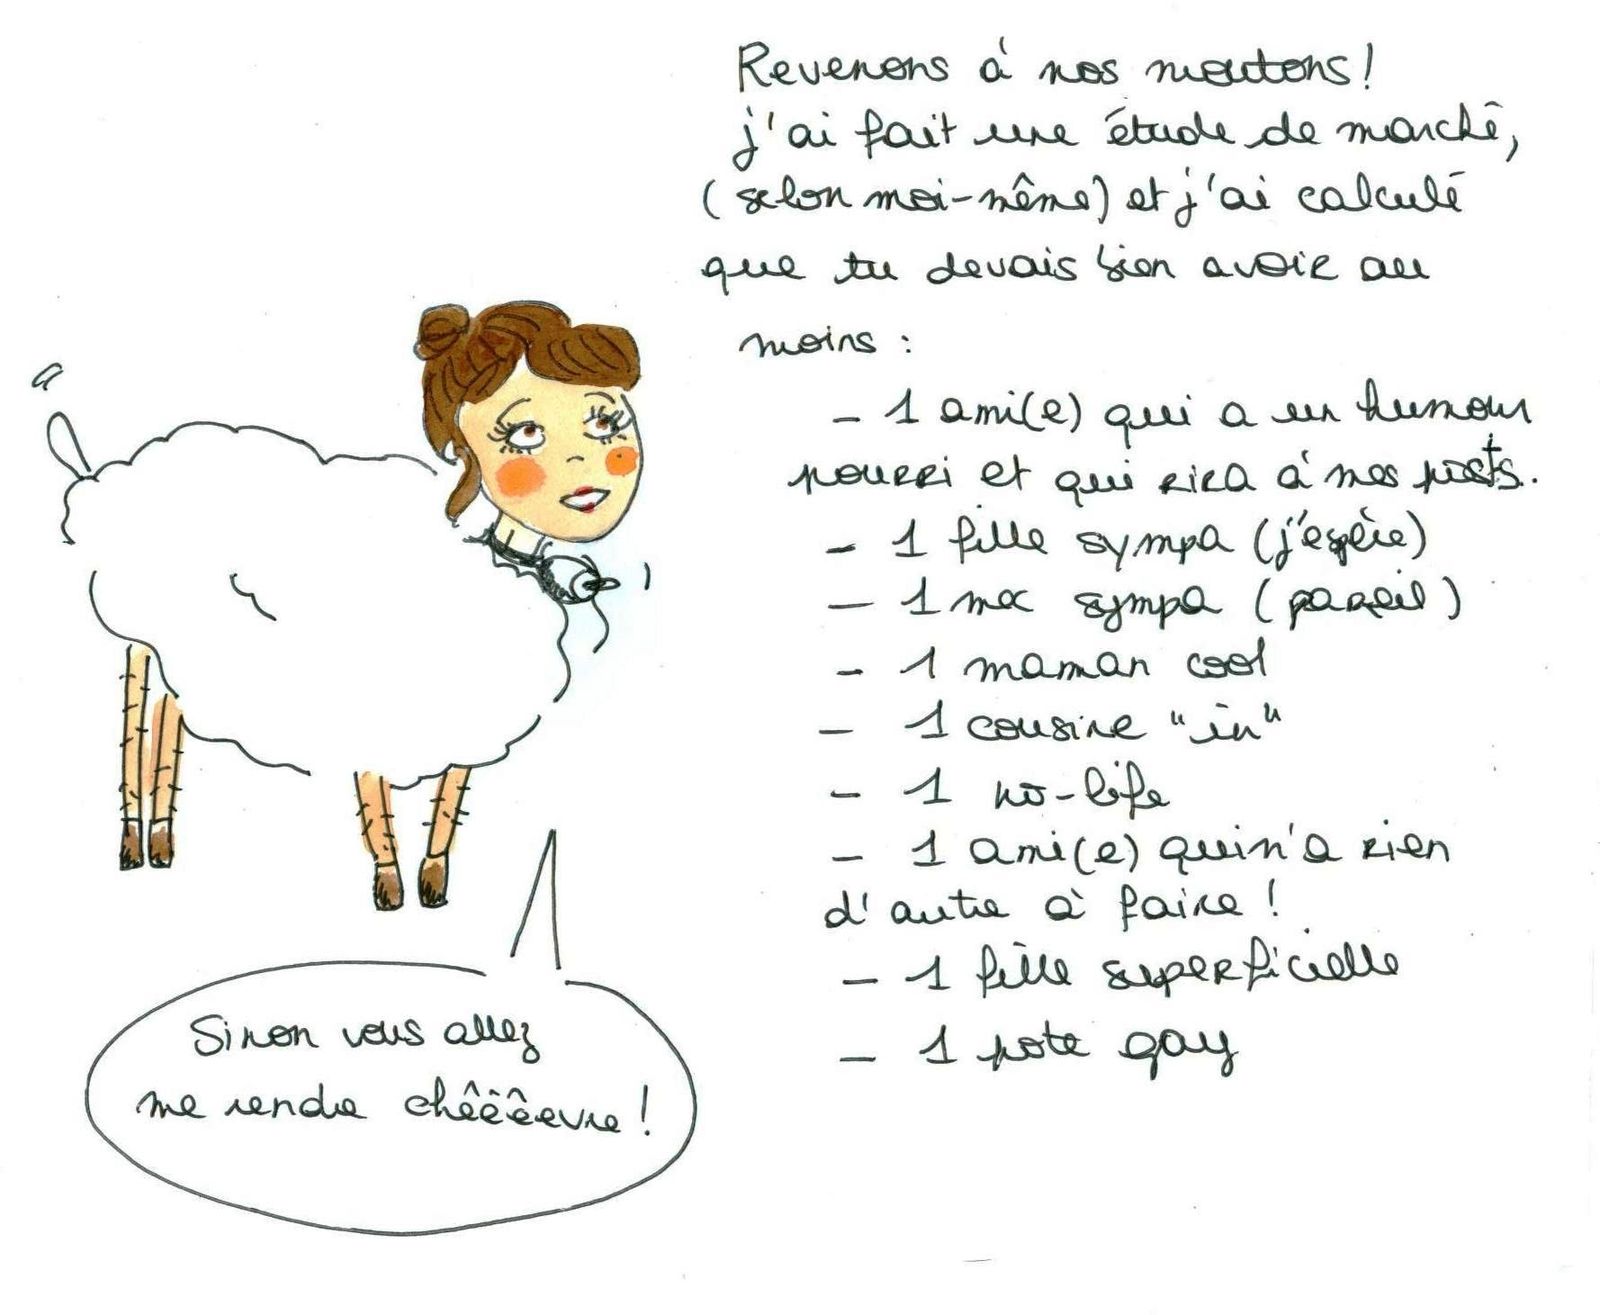 Revenons à nos moutons!
j'ai fait une étude de marché,
(selon moi-même) et j'ai calculé
que tu devais bien avoir au
moins :
- 1 ami(e) qui a un humour
pourri et qui rira à mes posts.
- 1 fille sympa (j'espère)
- 1 mec sympa (pareil)
- 1 maman cool
- 1 cousine "in"
- 1 no-life
- 1 ami(e) qui n'a rien
d'autre à faire !
- 1 fille superficielle
- 1 pote gay
Sinon vous allez
me rendre chêêêevre !